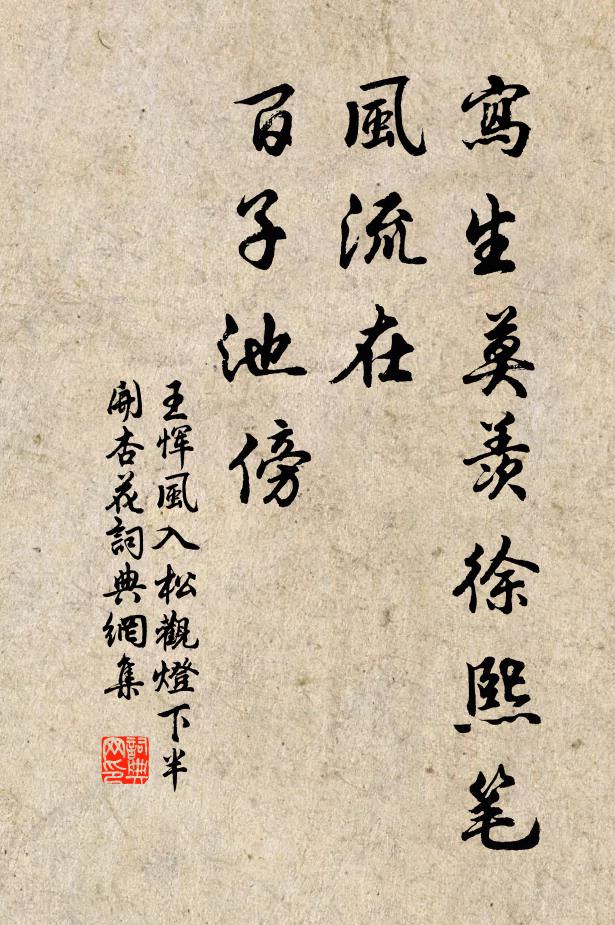 寫生莫羨徐熙笔
風流在
百子池傍
王惲風入松觀燈下半
開杏花詞典網集
詞典网印